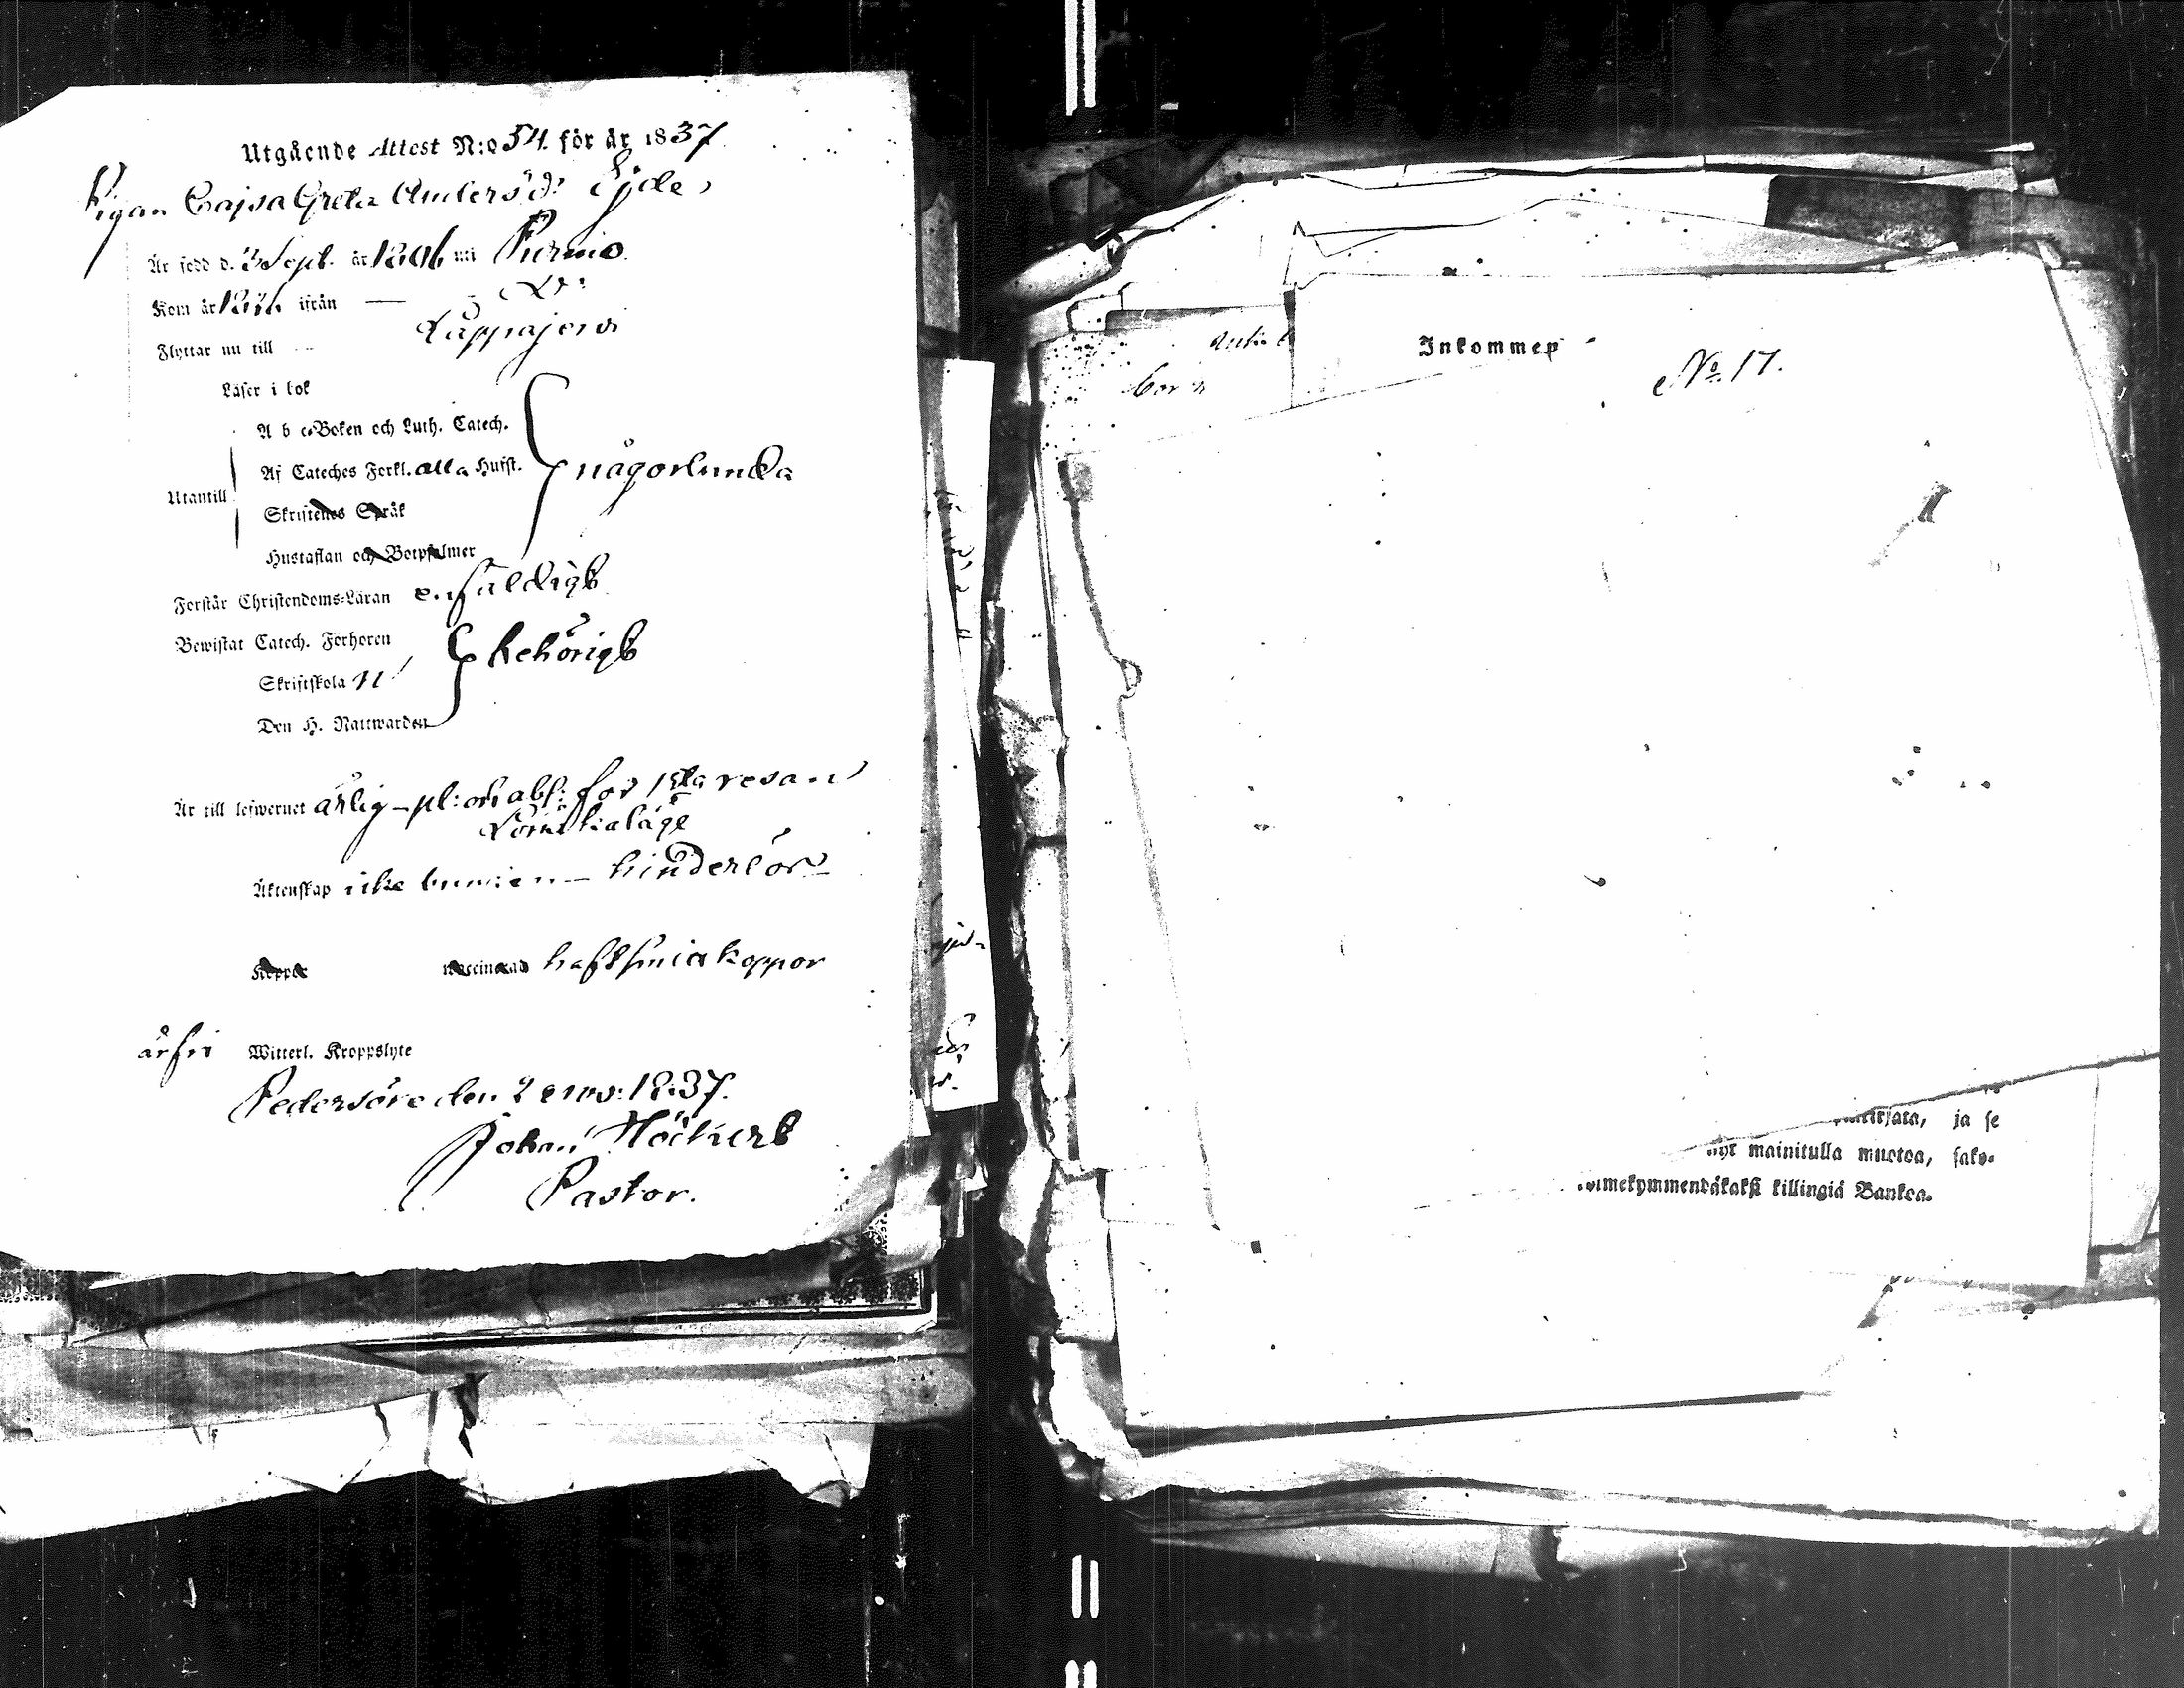 Utgående Attest N:o 54. för år 1837
Pigan Cajsa Greta Andersd:r Ejde,
Är född d. 3 Sept. år 1806 uti Purmo
Kom år 1836 ifrån — D:o
Flyttar nu till Lappajervi
Läser i bok
A b c-Boken och Luth. Catech.
Af Cateches Förkl. alla Hufst. någorlunda
Utantill
Skriftenes Språk
Hustaflan och Botpsalmer
Förstår Christendoms-Läran enfaldigt
Bewistat Catech. Förhören behörigt
Skriftskola
Den H. Nattwarden
Är till lefwernet ärlig – pl: och abs: för 1sta resan
Lönskaläge
Äktenskap icke bunden – hinderlös –
Koppor vaccinerad haft smärkoppor
är fri Witterl. Kroppslyte
Pedersöre den 2 1837.
Johan Höckert
Pastor.
Inkommen
No. 17.
ja se
mainitulla muotoa, saka-
killingiä Bankoa.